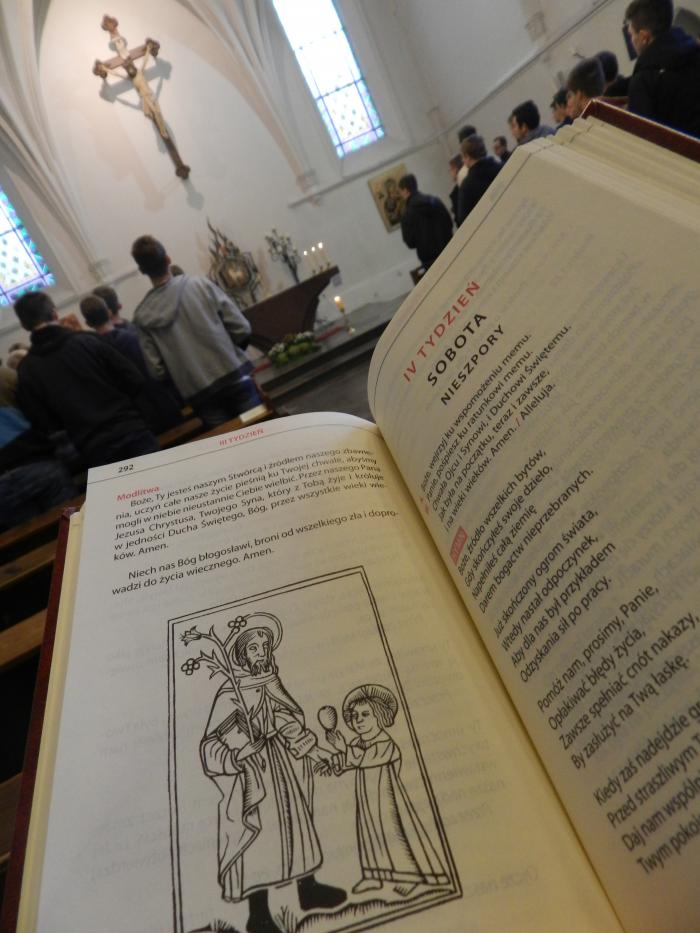 292
III TYDZIEŃ
Modlitwa
Boże, Ty jesteś naszym Stwórcą i źródłem naszego zbawie-
nia, uczyń całe nasze życie pieśnią ku Twojej chwale, abyśmy
mogli w niebie nieustannie Ciebie wielbić. Przez naszego Pana
Jezusa Chrystusa, Twojego Syna, który z Tobą żyje i króluje
w jedności Ducha Świętego, Bóg, przez wszystkie wieki wie-
ków. Amen.
Niech nas Bóg błogosławi, broni od wszelkiego zła i dopro-
wadzi do życia wiecznego. Amen.
IV TYDZIEŃ
SOBOTA
NIESZPORY
Boże, wejrzyj ku wspomożeniu memu.
Panie, pospiesz ku ratunkowi memu.
Chwała Ojcu i Synowi, i Duchowi Świętemu.
Jak była na początku, teraz i zawsze,
i na wieki wieków. Amen. / Alleluja.
HYMN
Boże, źródło wszelkich bytów,
Gdy skończyłeś swoje dzieło,
Napełniłeś całą ziemię
Darem bogactw nieprzebranych.
Już skończony ogrom świata,
Wtedy nastał odpoczynek,
Aby dla nas był przykładem
Odzyskania sił po pracy.
Pomóż nam, prosimy, Panie,
Opłakiwać błędy życia,
Zawsze spełniać cnót nakazy,
By zasłużyć na Twą łaskę.
Kiedy zaś nadejdzie
Przed straszliwym
Daj nam wspóln
Twym pokoj